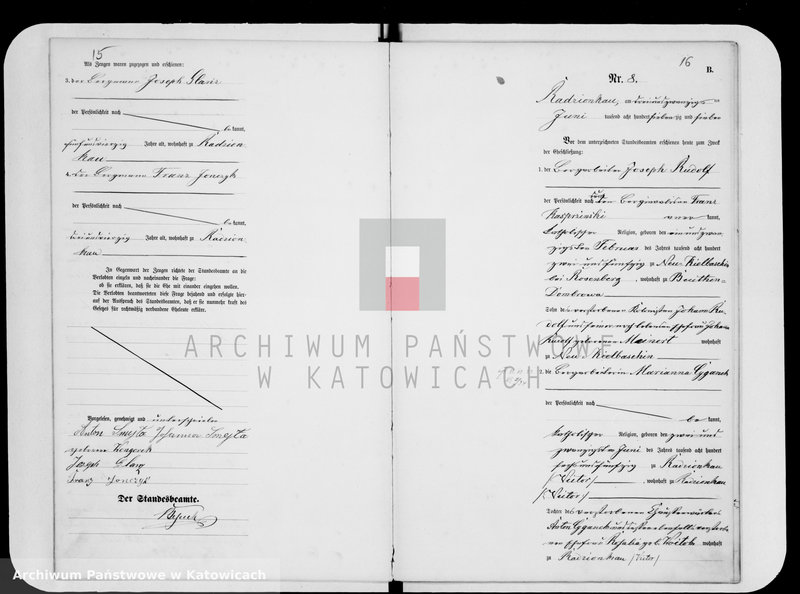 15
Als Zeugen waren zugezogen und erschienen:
3. der Bergmann Joseph Glanz
der Persönlichkeit nach
be kannt,
fünfundvierzig Jahre alt, wohnhaft zu Radzion
kau
4. der Bergmann Franz Jonczyk
der Persönlichkeit nach
be kannt,
Jahre alt, wohnhaft zu Radzion
kau
In Gegenwart der Zeugen richtete der Standesbeamte an die
Verlobten einzeln und nacheinander die Frage:
ob sie erklären, daß sie die Ehe mit einander eingehen wollen.
Die Verlobten beantworteten diese Frage bejahend und erfolgte hier-
auf der Ausspruch des Standesbeamten, daß er sie nunmehr kraft des
Gesetzes für rechtmäßig verbundene Eheleute erkläre.
Vorgelesen, genehmigt und unterschrieben
Anton Smejta Johanna Smejta
geborne
Joseph Glanz
Franz Jonczyk
Der Standesbeamte.
16
B.
Nr. 8.
Radzionkau, am dreiundzwanzigsten
Juni tausend acht hundert siebenzig und sieben
Vor dem unterzeichneten Standesbeamten erschienen heute zum Zweck
der Eheschließung:
1. der Bergarbeiter Joseph Rudolf
der Persönlichkeit nach durch den Berginvaliden Franz
Kasprzinski aner kannt,
katholischer Religion, geboren den einundzwan
zigsten Februar des Jahres tausend acht hundert
zwei und fünfzig zu Neu Kielbaschin
bei Rosenberg, wohnhaft zu Beuthen-
Dombrowa
Sohn des verstorbenen Kolonisten Johann Ru
dolf und seiner noch lebenden Ehefrau Johanna
Rudolf geborenen Meinert wohnhaft
zu Neu Kielbaschin
2. die Bergarbeiterin Marianna Gyganek
der Persönlichkeit nach
be kannt,
katholischer Religion, geboren den zwei und
zwanzigsten Juni des Jahres tausend acht hundert
sechsundfünfzig zu Radzionkau
/Vietor/, wohnhaft zu Radzionkau
/Vietor/
Tochter des verstorbenen Häuslers
Anton Gyganek und dessen ebenfalls verstorbe
nen Ehefrau Rosalia geb. wohnhaft
zu Radzionkau /Vietor/
ARCHIWUM PAŃSTWOWE
W KATOWICACH
Archiwum Państwowe w Katowicach